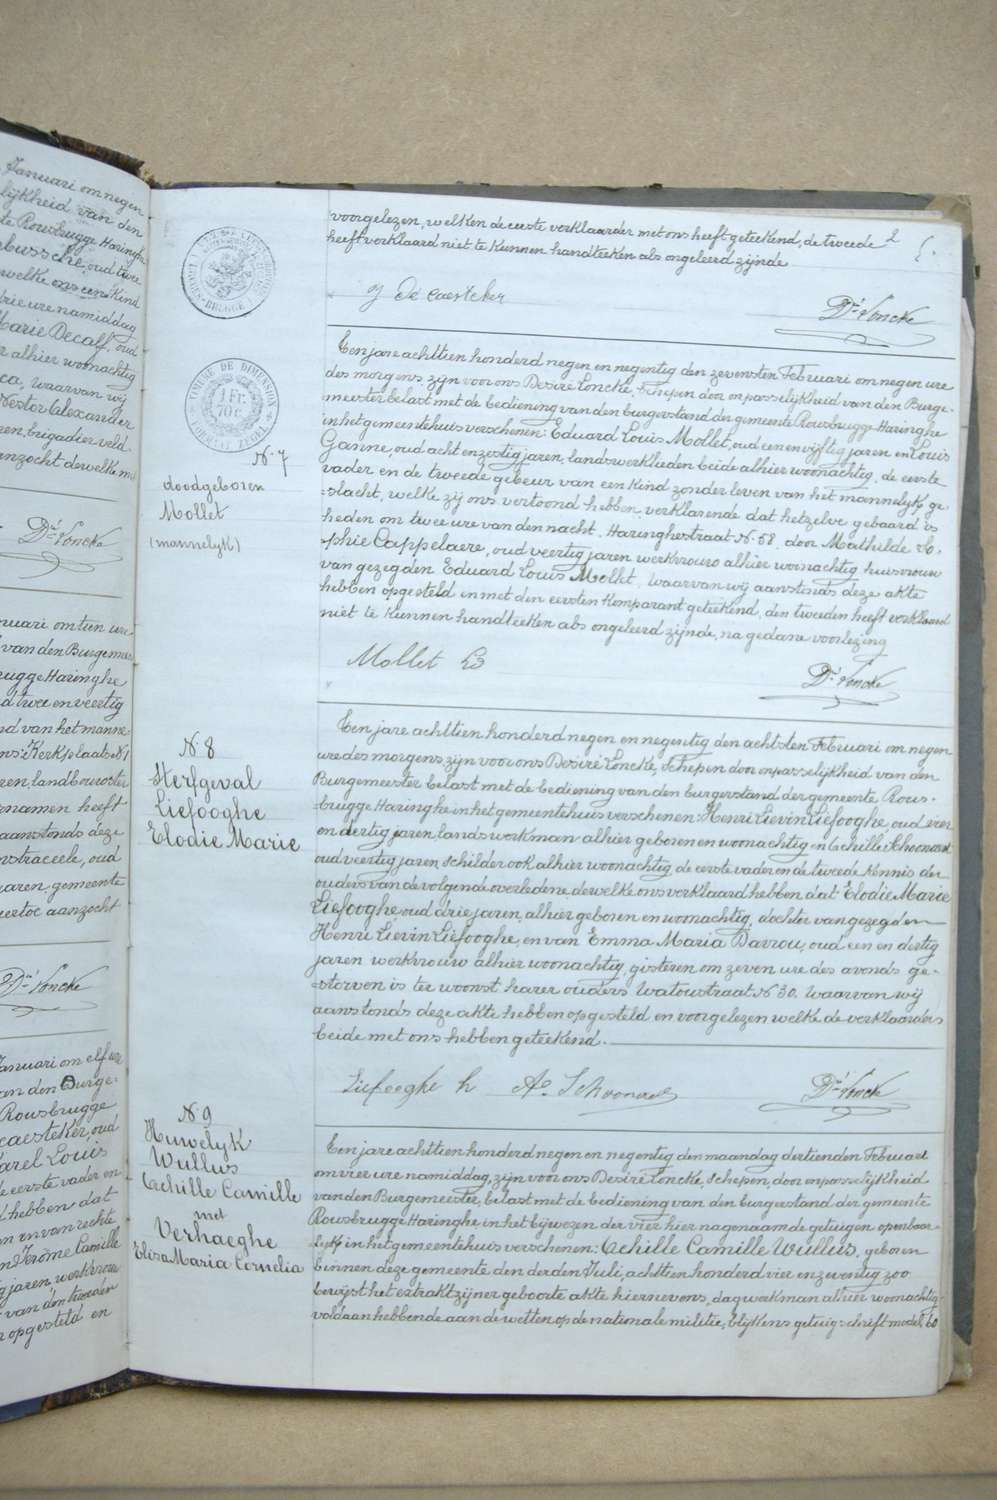 Januari om negen
lijkheid van den
te Rousbrugge Haringhe
ebussche, oud twee
welke ons een Kind
drie ure namiddag
Marie Decalf, oud
r alhier woonachtig
ca, waarvan wij
Nestor Alexander
ren, brigadier veld
anzocht derwelke met
Dré Loncke
nuari om tien ure
van den Burgemees
rugge Haringhe
d twee en veertig
nd van het manne-
ns, Kerkplaats N. 1
ren, landbouwster
rnamen heeft
aanstonds deze
nstraceele, oud
jaren, gemeente
uertoc aanzocht
Dré Loncke
Januari om elf ure
an den Burge-
Rousbrugge
caesteker, oud
Karel Louis
de eerste vader en
d hebben dat
m en van rechte
en Jérôme Camille
g jaren, werkvrouw
van den tweeden
n opgesteld en
voorgelezen, welken de eerste verklaarder met ons heeft geteekend, de tweede
heeft verklaard niet te kunnen handteeken als ongeleerd zijnde
2
J De Caesteker
Dré Loncke
BRUGES-BRUGGE
TIMBRE DE DIMENSION
1 Fr.
70 c.
FORMAAT ZEGEL
N. 7
doodgeboren
Mollet
(mannelyk)
Een jare achttien honderd negen en negentig den zevensten Februari om negen ure
des morgens zijn voor ons Desiré Loncke, Schepen door onpasselijkheid van den Burge-
meester belast met de bediening van den burgerstand der gemeente Rousbrugge-Haringhe
in het gemeentehuis verschenen: Eduard Louis Mollet, oud een en vijftig jaren en Louis
Ganne, oud acht en zestig jaren, landswerklieden beide alhier woonachtig, de eerste
vader en de tweede gebeur van een kind zonder leven van het mannelyk ge-
slacht, welke zij ons vertoond hebben, verklarende dat hetzelve gebaard is
heden om twee ure van den nacht, Haringhestraat N. 58, door Mathilde So-
phie Cappelaere, oud veertig jaren werkvrouw alhier woonachtig huisvrouw
van gezegden Eduard Louis Mollet, waarvan wij aanstonds deze akte
hebben opgesteld en met den eersten komparant geteekend, den tweeden heeft verklaard
niet te kunnen handteeken als ongeleerd zijnde, na gedane voorlezing
Mollet Ed
Dré Loncke
N. 8
Sterfgeval
Liefooghe
Elodie Marie
Een jare achttien honderd negen en negentig den achtsten Februari om negen
ure des morgens zijn voor ons Desiré Loncke, Schepen door onpasselijkheid van den
Burgemeester belast met de bediening van den burgerstand der gemeente Rous-
brugge Haringhe in het gemeentehuis verschenen: Henri Lievin Liefooghe, oud vier
en dertig jaren landswerkman alhier geboren en woonachtig en Achille Schoonaert
oud veertig jaren, schilder ook alhier woonachtig de eerste vader en de tweede kennis der
ouders van de volgende overledene, derwelke ons verklaard hebben dat Elodie Marie
Liefooghe, oud drie jaren, alhier geboren en woonachtig, dochter van gezegden
Henri Lievin Liefooghe, en van Emma Maria Davrou, oud een en dertig
jaren werkvrouw alhier woonachtig, gisteren om zeven ure des avonds ge-
storven is ter woonst harer ouders Watoustraat N. 30. Waarvan wij
aanstonds deze akte hebben opgesteld en voorgelezen welke de verklaarders
beide met ons hebben geteekend.
Liefooghe h Ac. Schoonaert
Dré Loncke
N. 9
Huwelyk
Wullus
Achille Camille
met
Verhaeghe
Elisa Maria Cornelia
Een jare achttien honderd negen en negentig den maandag dertienden Februari
om vier ure namiddag, zijn voor ons Desiré Loncke, Schepen, door onpasselijkheid
van den Burgemeester, belast met de bediening van den burgerstand der gemeente
Rousbrugge Haringhe in het bijwezen der vier hier nagenaamde getuigen openbaar-
lyk in het gemeentehuis verschenen: Achille Camille Wullus, geboren
binnen deze gemeente den derden Juli, achttien honderd vier en zeventig zoo
bewijst het extrakt zijner geboorte akte hiernevens, dagwerkman alhier woonachtig
voldaan hebbende aan de wetten op de nationale militie, blijkens getuigschrift model 60